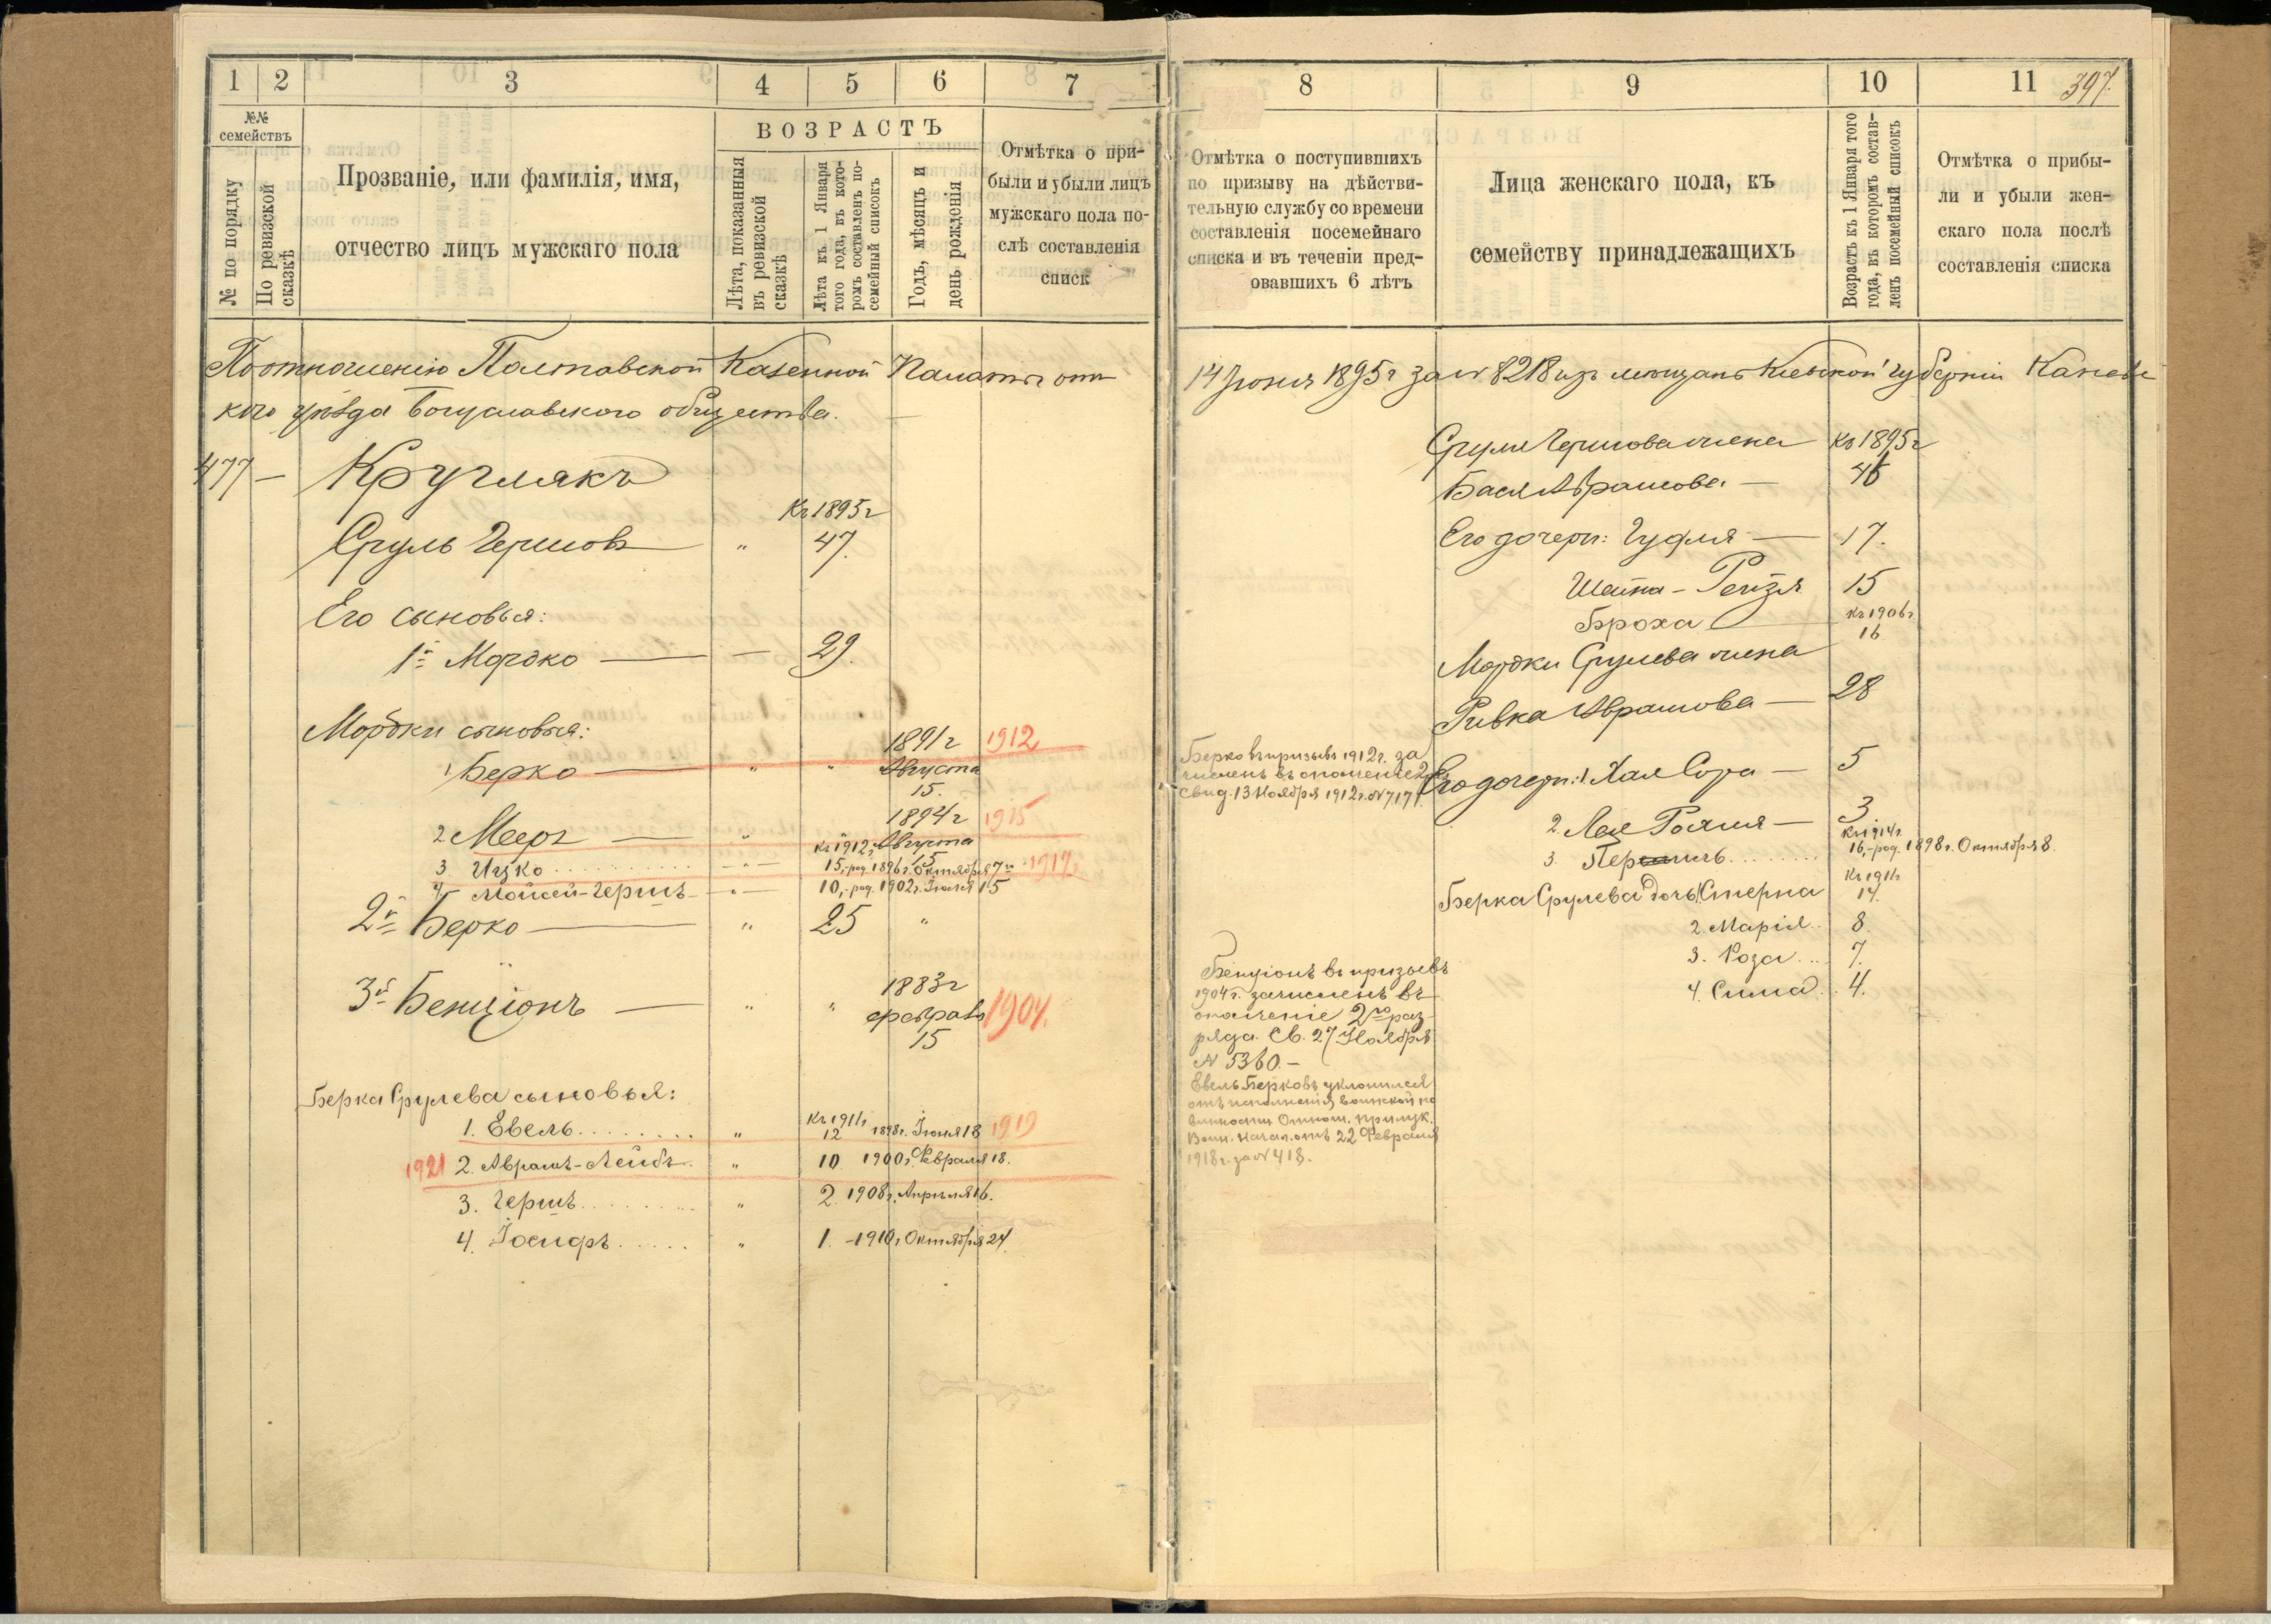 1 2 3 4 5 6 7
№№ семействъ
№ по порядку
По ревизской сказкѣ
Прозваніе, или фамилія, имя,
отчество лицъ мужскаго пола
ВОЗРАСТЪ
Лѣта, показанныя
въ ревизской
сказкѣ
Лѣта къ 1 Января
того года, въ кото-
ромъ составленъ по-
семейный списокъ
Годъ, мѣсяцъ и
день рожденія
Отмѣтка о при-
были и убыли лицъ
мужскаго пола по-
слѣ составленія
списк
По отношенію Полтавской Казенной Палаты отъ
кого уѣзда Богуславского общества.
477 — Кругликъ
Къ 1895 г
Сруль Гершовъ " 47.
Его сыновья:
1й Мордко — 29.
Мордки сыновья:
1 Берко " " 1891 г Августа 15. 1912
2 Меер " 1894 г Августа 15 1915
Къ 1912 г
3 Ицко 15,-род. 1896 г. Октября 7 1917
4 Мойсей-Гершъ 10,-род. 1902 г. Іюня 15
2й Берко " 25 "
3й Бенціонъ " " 1883 г февраля 15 1904.
Берка Срулева сыновья:
Къ 1911 г
1. Евель " 12 1898 г. Іюня 18 1919
1921 2. Аврамъ-Лейбъ " 10 1900 г. Февраля 18.
3. Гершъ " 2. 1908 г. Апрѣля 16.
4. Іосифъ " 1. -1910 г. Октября 24.
8 9 10 11 397.
Отмѣтка о поступившихъ
по призыву на дѣйстви-
тельную службу со времени
составленія посемейнаго
списка и въ теченіи пред-
овавшихъ 6 лѣтъ
Лица женскаго пола, къ
семейству принадлежащихъ
Возрастъ къ 1 Января того
года, въ которомъ состав-
ленъ посемейный списокъ
Отмѣтка о прибы-
ли и убыли жен-
скаго пола послѣ
составленія списка
14 Іюня 1895 г за № 8218 изъ мѣщанъ Кіевской губерніи Каневс
Сруля Гершова жена Къ 1895 г
Бася Абрамова — 46
Его дочери: Гудля — 17.
Шейна-Рейзя 15
Броха Къ 1906 г. 16
Мордки Срулева жена
Ривка Абрамова — 28
Берко въ призывъ 1912 г. за
численъ въ ополченіе 2
свид. 13 Ноября 1912 г. № 7171.
Его дочери: 1. Хая Сура — 5
2. Лея — 3
Къ 1914 г.
3. 16,-род. 1898 г. Октября 8.
Къ 1911 г
Берка Срулева дочь 1 Стерна 14.
2. Марія 8.
3. Роза 7.
4. Сима 4.
Бенціонъ въ призывъ
1904 г. зачисленъ въ
ополченіе 2го раз-
ряда. Св. 27 Ноября
№ 5360.-
Евель Берковъ уклонился
отъ исполненія воинской по
винности Отнош. Прилук.
Воин. Начал. отъ 22 Февраля
1918 г. за № 418.